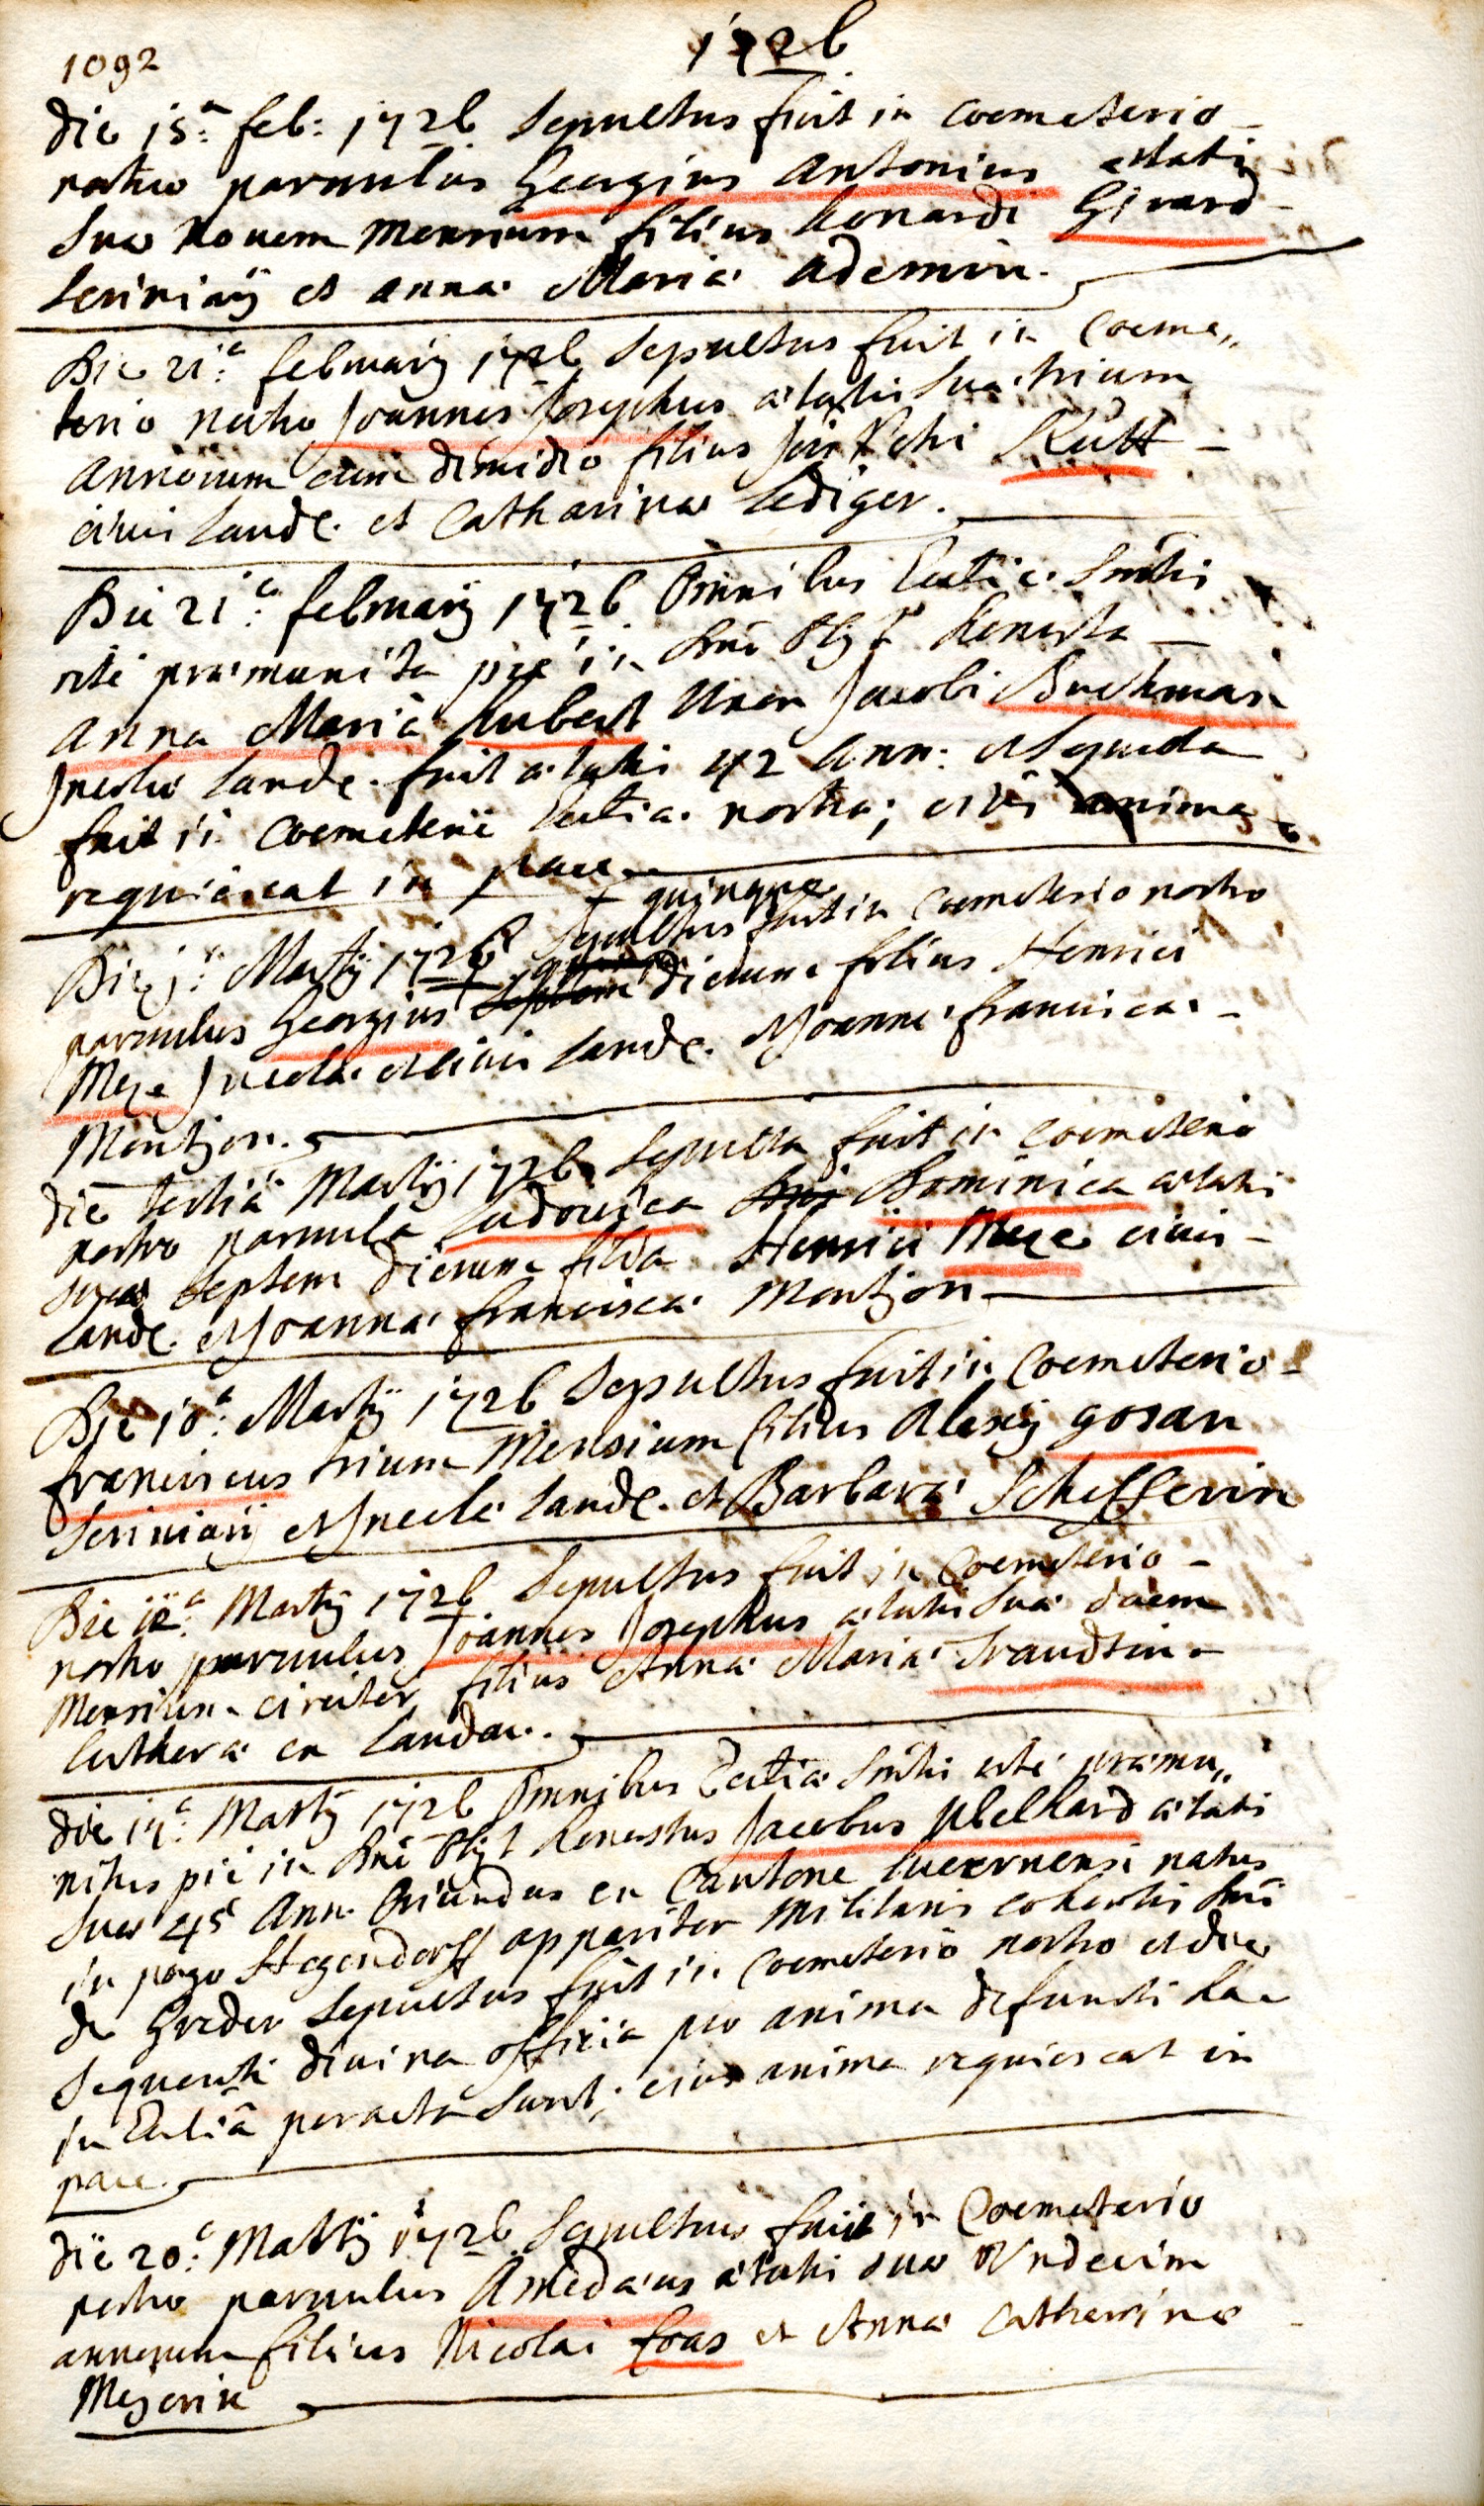 1726
1092
die 15.a feb: 1726 Sepultus fuit in coemeterio
nostro parvulus Georgius Antonius ætatis
Suæ Novem Mensium filius Leonardi Girard
Scriniarij et annæ Mariæ Ademin.
Die 21.a februarij 1726 Sepultus fuit in Coeme„
terio nostro Joannes Josephus ætatis Suæ trium
annorum cum dimidio filius Petri Rütt
civis Landc. et Catharinæ Lediger.
Die 21.a februarij 1726 Omnibus Eccliæ Smtis
rite præmunita pie in Dno Obyt honesta
Anna Maria Hubert Uxor Jacobi Buchman
Incolæ Landc. fuit ætatis 42 Ann: et Sepulta
fuit in Coemeterii Eccliæ nostræ; eius anima
requiescat in pace
quinque
Die j.a Martij 1726 Sepultus fuit in Coemeterio nostro
parvulus Georgius Septem dierum filius Henrici
Meze Incolæ et civis Landc. et Joannæ franciscæ
Montjon.
die tertiâ Martij 1726 Sepulta fuit in coemeterio
nostro parvula Ludovica Dominica ætatis
suæ Septem dierum filia Henrici Meze civis
Landc. et Joannæ franciscæ Montjon
Die 10.a Martij 1726 Sepultus fuit in Coemeterio
franciscus trium Mensium filius Alexij gosan
Scriniarij et Incolæ Landc. et Barbaræ Schefferin
Die 12.a Martij 1726 Sepultus fuit in Coemeterio
nostro parvulus Joannes Josephus ætatis Suæ duem
Mensium circiter filius Annæ Mariæ Traudtin
Lutheræ ex Landau.
die 14.a Martij 1726 Omnibus Eccliæ Smtis rite præmu„
nitus pie in Dno Obyt honestus Jacobus Ubelhard ætatis
Suæ 45 Ann. Oriundus ex Cantone lucernensi natus
in pago Hegendorff apparitor Militaris cohortis Dni
de Greder Sepultus fuit in Coemeterio nostro et die
Sequenti divina officia pro anima defuncti hac
in Ecliâ peracta Sunt; eius anima requiescat in
pace.
die 20.a Martij 1726 Sepultus fuit in Coemeterio
nostro parvulus Amedæus ætatis suæ Undecim
annorum filius Nicolai foas et Annæ Catharinæ
Mejerin